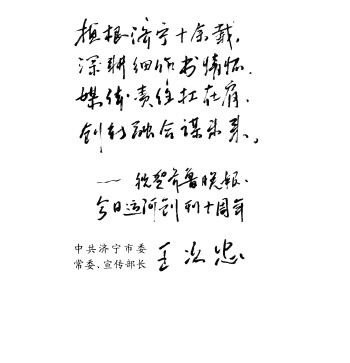 植根济宁十余载，
深耕细作书情怀，
媒体责任扛在肩，
创新融合谋未来。
——祝贺齐鲁晚报·
今日运河创刊十周年
中共济宁市委
常委、宣传部长 王次忠